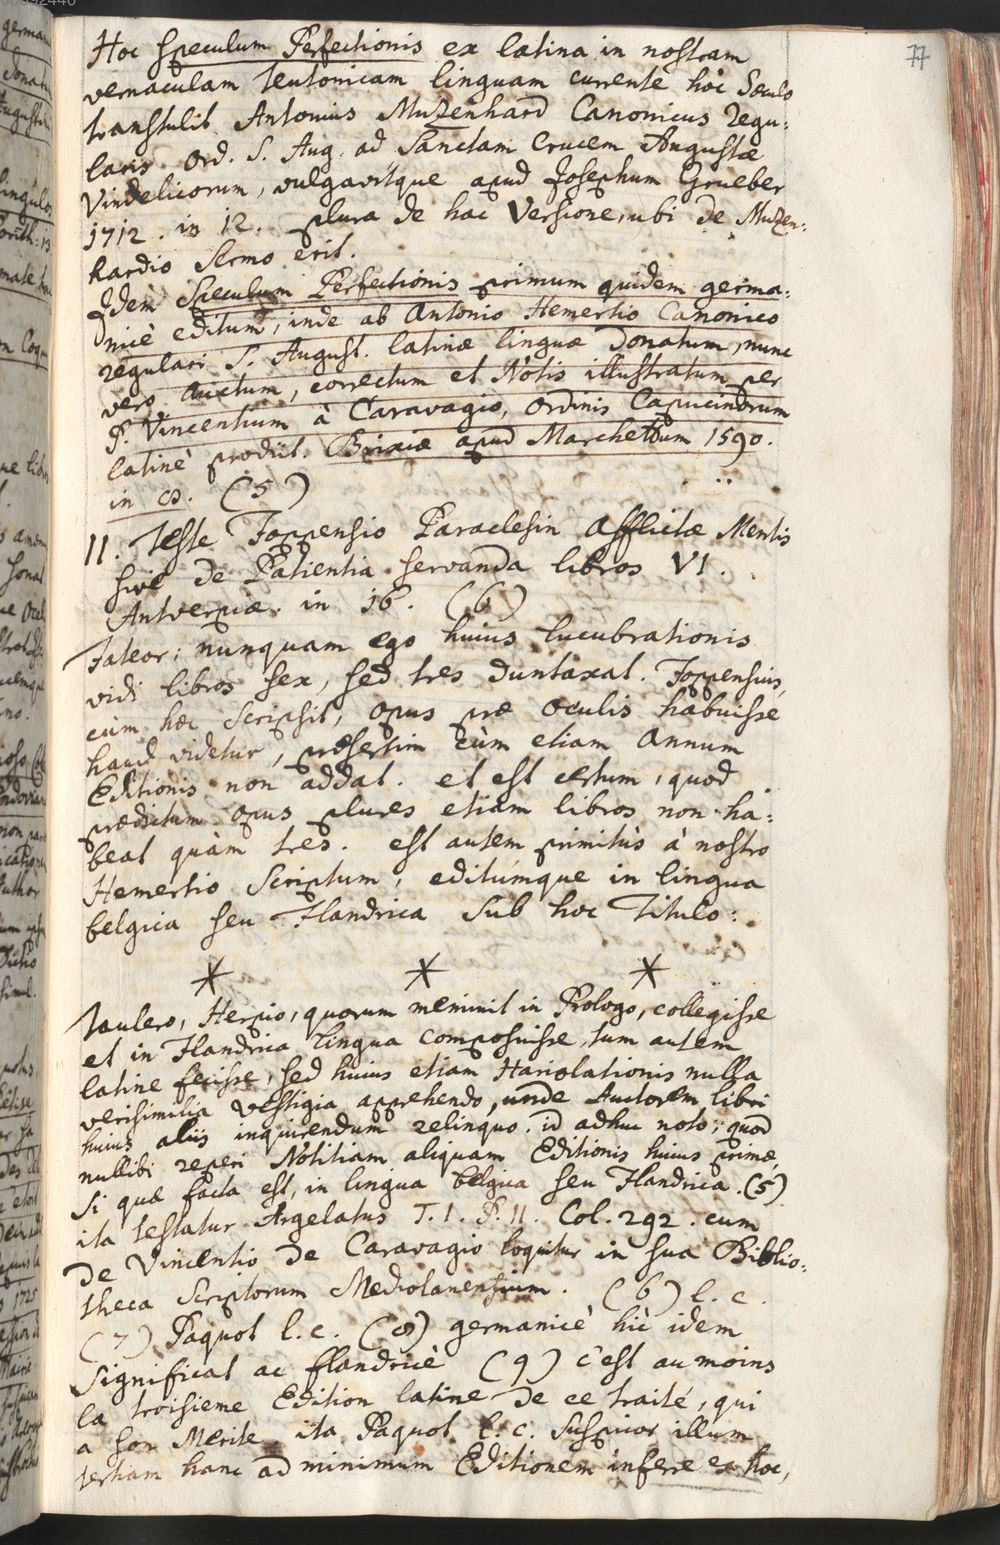 77
Hoc Speculum Perfectionis ex latina in nostram
vernaculam teutonicam linguam currente hoc Sæculo
transtulit Antonius Muzenhard Canonicus Regu:
laris Ord. S. Aug. ad Sanctam Crucem Augustæ
Vindelicorum, vulgavitque apud Josephum Grueber
1712. in 12. plura de hac Versione, ubi de Muzen:
hardio Sermo erit.
Idem Speculum Perfectionis primum quidem germa:
nicè editum, inde ab Antonio Hemertio Canonico
regulari S. August. latinæ linguæ Donatum, nunc
vero Auctum, correctum et Notis illustratum per
P. Vincentium à Caravagio, Ordinis Capucinorum
latinè prodiit. Brixiæ apud Marchettum 1590.
in 8. (5)
II. Teste Foppensio Paraclesin Afflictæ Mentis
sive de Patientia servanda libros VI.
Antverpiæ. in 16. (6)
Fateor; nunquam ego huius lucubrationis
vidi libros sex, sed tres duntaxat. Foppensius,
cùm hæc Scripsit, opus præ oculis habuisse
haud videtur, præsertim cùm etiam Annum
Editionis non addat. et est certum, quod
prædictum opus plures etiam libros non ha:
beat quàm tres. est autem primitùs à nostro
Hemertio Scriptum, editúmque in lingua
belgica seu Flandrica sub hoc Titulo:
* * *
Taulero, Herpio, quorum meminit in Prologo, collegisse
et in Flandrica lingua composuisse, tum autem
latine fecisse, sed huius etiam Hariolationis nulla
verisimilia vestigia apprehendo, unde Auctorem libri
huius aliis inquirendum relinquo. id adhuc noto, quod
nullibi reperi Notitiam aliquam Editionis huius primæ,
si quæ facta est, in lingua belgica seu Flandrica. (5)
ita testatur Argelatus T. I. P. II. Col. 292. cum
de Vincentio de Caravagio loquitur in sua Biblio:
theca Scriptorum Mediolanensium. (6) l. c.
(7) Paquot l. c. (8) germanicè hìc idem
significat ac flandricè (9) c'est au moins
la troisieme Edition latine de ce traité, qui
a son Merite ita Paquot l. c. Suspicor illum
tertiam hanc ad minimum Editionem inferre ex hoc,